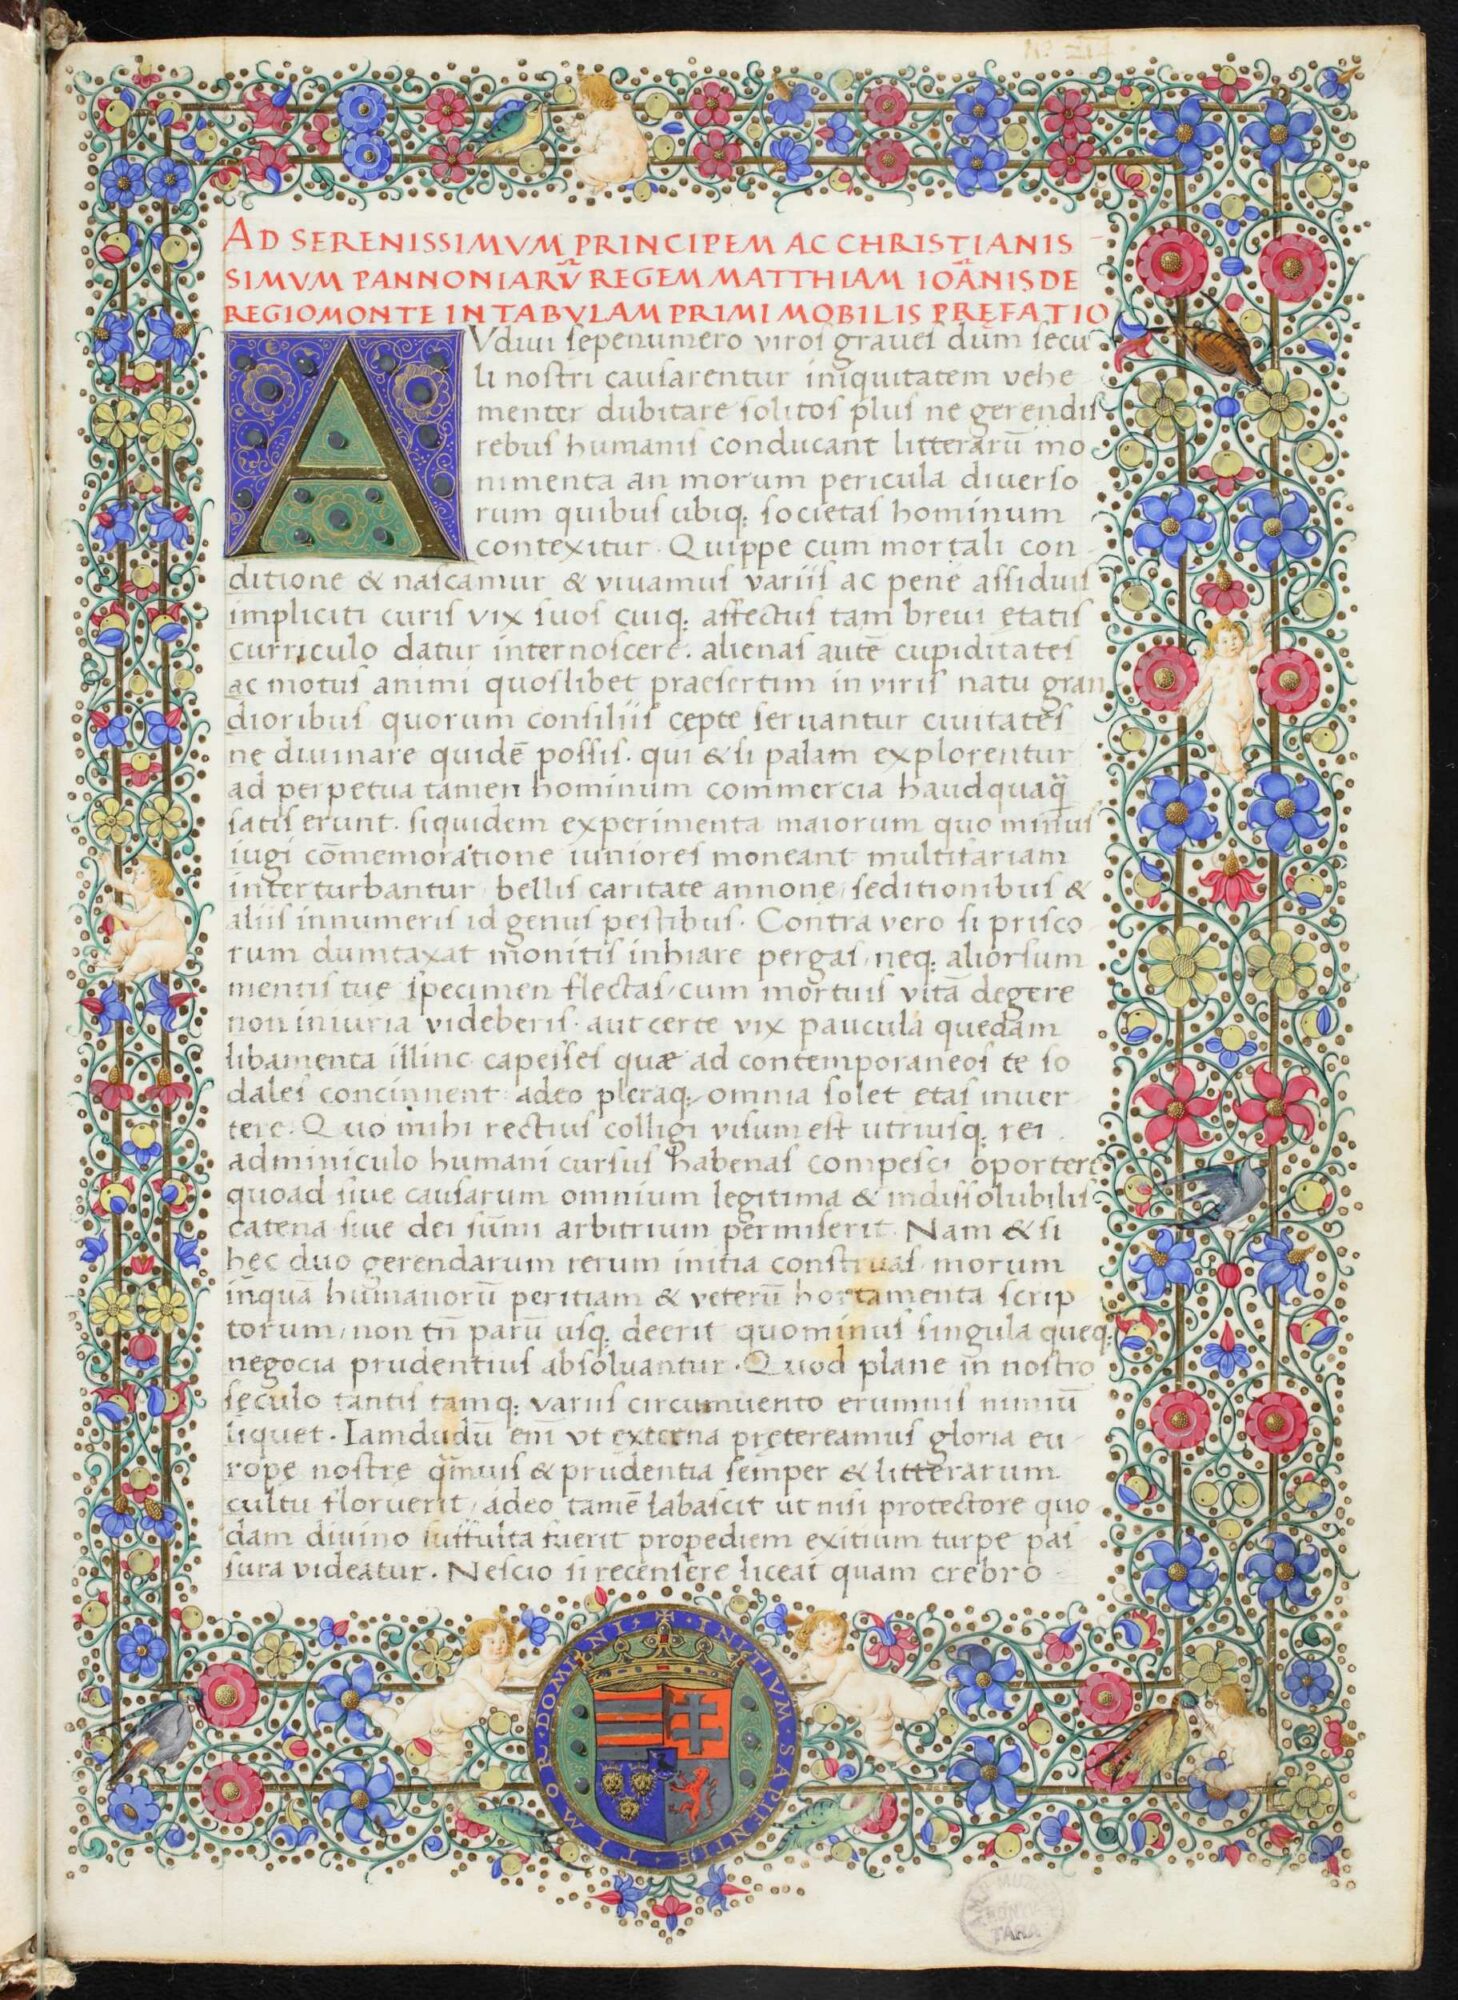 AD SERENISSIMVM PRINCIPEM AC CHRISTIANIS
SIMVM PANNONIARṼ REGEM MATTHIAM IOÃNIS DE
REGIOMONTE IN TABVLAM PRIMI MOBILIS PRĘFATIO
AVdiui sepenumero viros graues dum secu
li nostri causarentur iniquitatem vehe
menter dubitare solitos plus ne gerendis
rebus humanis conducant litterarũ mo
nimenta an morum pericula diuerso
rum quibus ubiq; societas hominum
contexitur. Quippe cum mortali con
ditione & nascamur & viuamus variis ac pene assiduis
impliciti curis vix suos cuiq; affectus tam breui etatis
curriculo datur internoscere. alienas autẽ cupiditates
ac motus animi quoslibet praesertim in viris natu gran
dioribus quorum consiliis cepte seruantur ciuitates
ne diuinare quidẽ possis. qui & si palam explorentur
ad perpetua tamen hominum commercia haudquaq̃
satis erunt. siquidem experimenta maiorum quo minus
iugi cõmemoratione iuniores moneant multifariam
interturbantur bellis caritate annone, seditionibus &
aliis innumeris id genus pestibus. Contra vero si prisco
rum dumtaxat monitis inhiare pergas, neq; aliorsum
mentis tue specimen flectas, cum mortuis vitã degere
non iniuria videberis. aut certe vix paucula quedam
libamenta illinc capesses quæ ad contemporaneos te so
dales concinnent. adeo pleraq; omnia solet etas inuer
tere. Quo mihi rectius colligi visum est utriusq; rei
adminiculo humani cursus habenas compesci oportere
quoad siue causarum omnium legitima & indissolubilis
catena siue dei sũmi arbitrium permiserit. Nam & si
hec duo gerendarum rerum initia construas, morum
inquã humanorũ peritiam & veterũ hortamenta scrip
torum, non tñ parũ usq; deerit quominus singula queq;
negocia prudentius absoluantur. Quod plane in nostro
sęculo tantis tamq; variis circumuento erumnis nimiũ
liquet. Iamdudũ eñi vt externa pretereamus gloria eu
rope nostre q̃muis & prudentia semper & litterarum
cultu floruerit, adeo tamẽ labascit ut nisi protectore quo
dam diuino suffulta fuerit propediem exitium turpe pas
sura videatur. Nescio si recensere liceat quam crebro
INITIVM · SAPIENTIE · TIMOR · DOMINI